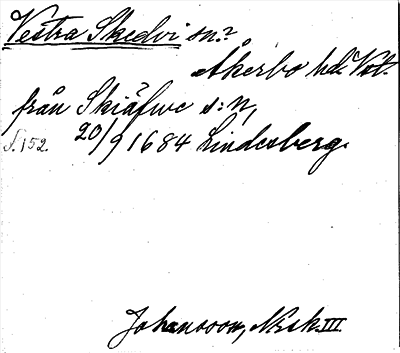 Vestra Skedvi sn.?
Åkerbo hd. Vst.
från Skiäfwe s:n,
S. 152. 20/9 1684 Lindesberg.
Johansson, Nrsk. III.